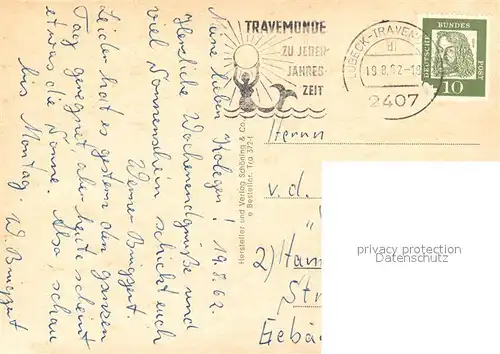 Meine lieben Kolegen! 19.8.62.
Herzliche Wochenendgrüße und
viel Sonnenschein schickt euch
Werner Brüggert
Leider hat es gestern den ganzen
Tag geregnet aber heute scheint
etwas die Sonne. Also, schau
bis Montag. W. Brüggert
Hersteller und Verlag Schöning & Co
Bestellnr. Tra 372-1
TRAVEMÜNDE
ZU JEDER
JAHRES-
ZEIT
LÜBECK-TRAVEM
19.8.62-18
2407
DEUTSCHE
BUNDES
POST
10
Herrn
v.d.
2) Ham
Str
Gebä
privacy protection
Datenschutz